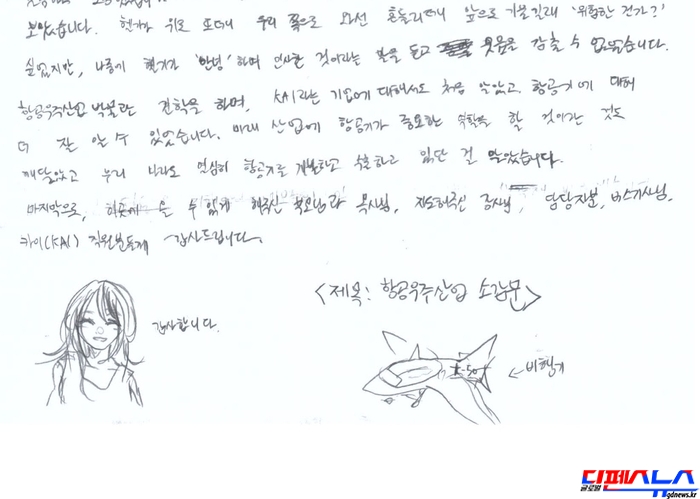 보았습니다. 헨켜가 위로 또더니 우리 쪽으로 와선 흔들리더니 앞으로 기울길래 '위험한 건가?'
싶었지만, 나중에 헨켜가 '안녕' 하며 인사한 것이라는 말을 듣고 웃음을 감출 수 없었습니다.
항공우주산업 박물관 견학을 하며, KAI라는 기업에 대해서도 처음 알았고, 항공기에 대해
더 잘 알 수 있었습니다. 미래 산업에 항공기가 중요한 역할을 할 것이라는 것도
깨달았고 우리 나라도 열심히 항공기를 개발하고 수출하고 있단 걸 알았습니다.
마지막으로, 수 있게 해주신 부모님과 목사님, 지도해주신 강사님, 담당자분, 버스기사님,
카이(KAI) 직원분들께 감사드립니다.
감사합니다.
<제목: 항공우주산업 소감문>
←비행기
글로벌 디펜스뉴스
gdnews.kr